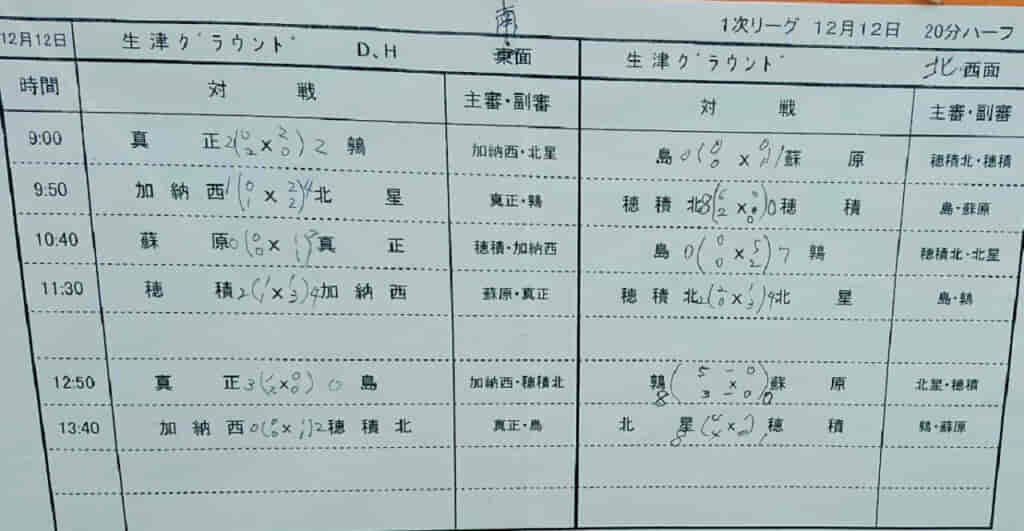 南
1次リーグ 12月12日 20分ハーフ
12月12日 生津グラウンド D、H 東面 生津グラウンド 北・西面
時間 対 戦 主審・副審 対 戦 主審・副審
9:00 真 正 2 (0 2 × 2 0) 2 鶉 加納西・北星 島 0 (0 0 × 0 1) 1 蘇 原 穂積北・穂積
9:50 加 納 西 1 (0 1 × 2 2) 4 北 星 真正・鶉 穂 積 北 8 (6 2 × 0 0) 0 穂 積 島・蘇原
10:40 蘇 原 0 (0 0 × 1 1) 真 正 穂積・加納西 島 0 (0 0 × 5 2) 7 鶉 穂積北・北星
11:30 穂 積 2 (1 1 × 1 3) 4 加 納 西 蘇原・真正 穂 積 北 (× 1 3) 4 北 星 島・鶉
12:50 真 正 3 (1 2 × 0 0) 0 島 加納西・穂積北 鶉 8 (5 - 0 × 3 - 0) 0 蘇 原 北星・穂積
13:40 加 納 西 0 (0 0 × 1 1) 2 穂 積 北 真正・島 北 星 8 (4 4 ×) 穂 積 鶉・蘇原